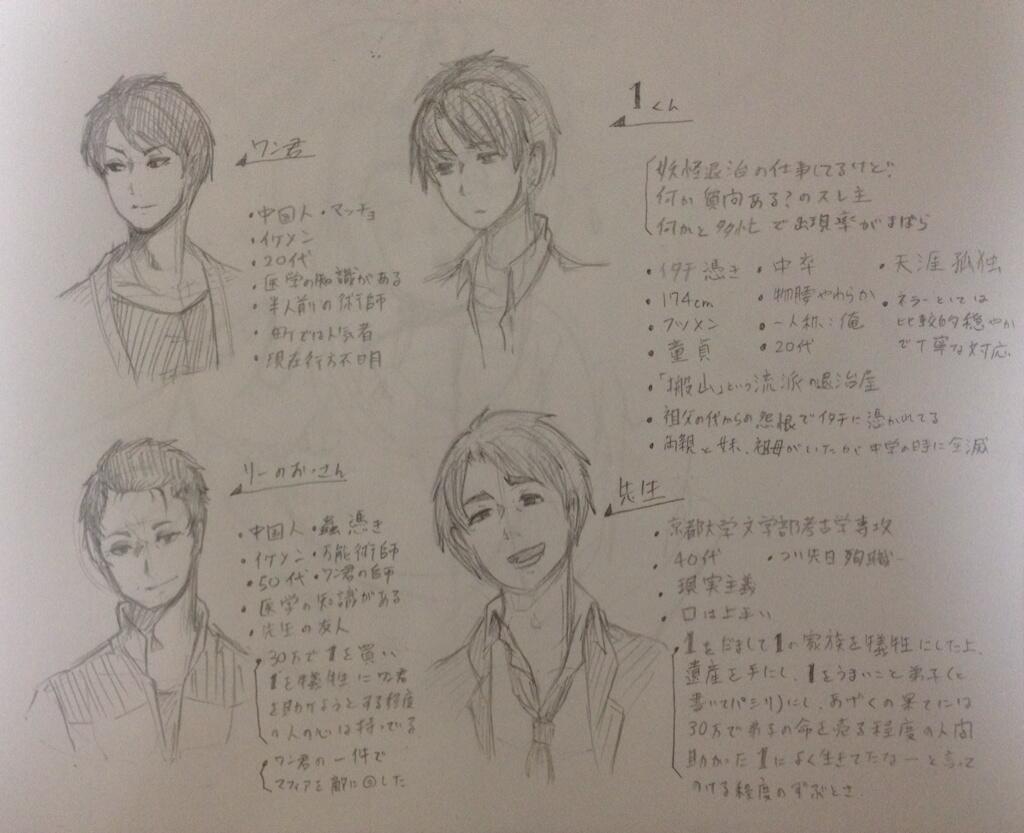 ワン君
・中国人・マッチョ
・イケメン
・20代
・医学の知識がある
・半人前の術師
・町では人気者
・現在行方不明
1くん
妖怪退治の仕事してるけど
何か質問ある?のスレ主
何かと多忙で出現率がまばら
・イタチ憑き ・中卒 ・天涯孤独
・174cm ・物腰やわらか ・ネラーとしては
・フツメン ・一人称:俺 比較的穏やか
・童貞 ・20代 で丁寧な対応
・「搬山」という流派の退治屋
・祖父の代からの怨恨でイタチに憑かれてる
・両親と妹、祖母がいたが中学の時に全滅
リーのおっさん
・中国人・蟲憑き
・イケメン・万能術師
・50代・ワン君の師
・医学の知識がある
・先生の友人
・30万で1を買い
1を犠牲にワン君
を助けようとする程度
の人の心は持ってる
ワン君の一件で
マフィアを敵に回した
先生
・京都大学文学部考古学専攻
・40代 ・つい先日殉職
・現実主義
・口は上手い
・1をだまして1の家族を犠牲にした上、
遺産を手にし、1をうまいこと弟子(と
書いてパシリ)にし、あげくの果てには
30万で弟子の命を売る程度の人間
助かった1によく生きてたなーと言って
のける程度のずぶとさ